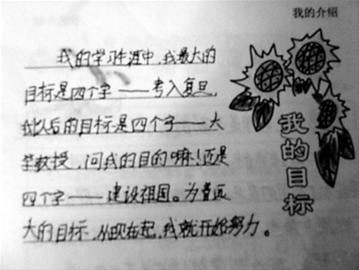 我的介绍
我的学习生涯中,我最大的
目标是四个字——考入复旦,
我以后的目标是四个字——大
学教授,问我的目的嘛!还是
四个字——建设祖国。为着远
大的目标,从现在起,我就开始努力。
我的目标